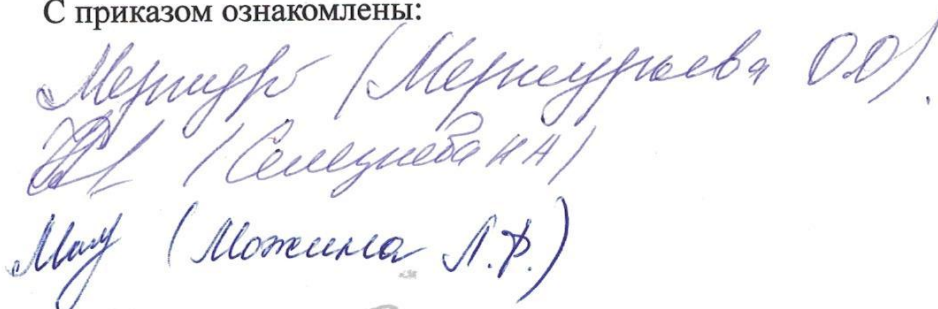 С приказом ознакомлены:
(Меркурьева О.О).
(Селезнева НН)
(Можина Л.Ф.)